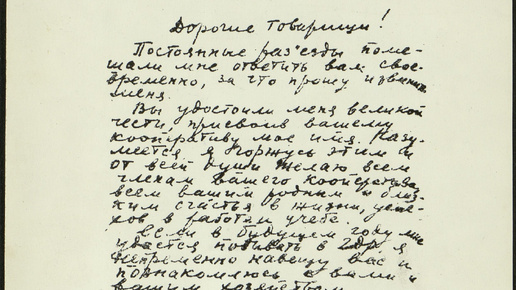 Дорогие товарищи!
Постоянные раз'езды поме-
шали мне ответить вам свое-
временно, за что прошу извинить
меня.
Вы удостоили меня великой
чести, присвоив вашему
кооперативу мое имя. Разу-
меется я горжусь этим и
от всей души желаю всем
членам вашего кооператива,
всем вашим родным и близ-
ким счастья в жизни, успе-
хов в работе и учебе.
Если в будущем году мне
удастся побывать в ГДР я
непременно навещу вас и
познакомлюсь с вами и
вашим хозяйством